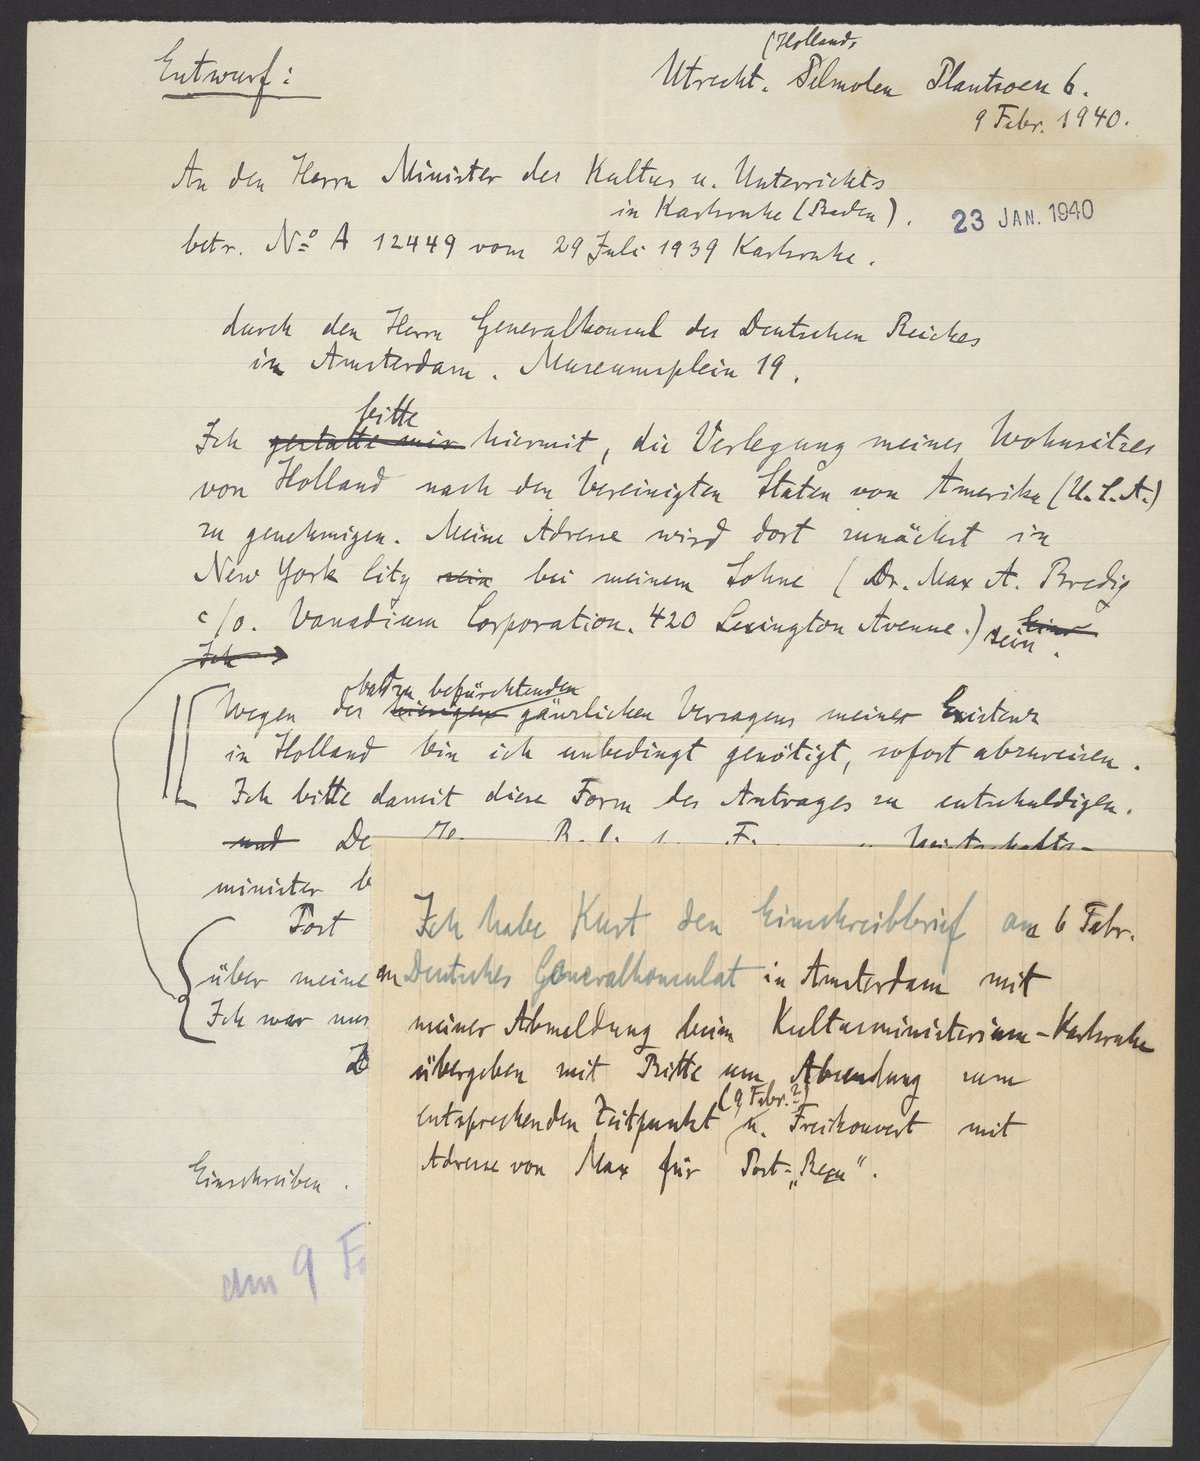 Entwurf:
(Holland)
Utrecht. Pelmolen Plantsoen 6.
9 Febr. 1940.
An den Herrn Minister des Kultus u. Unterrichts
in Karlsruhe (Baden).
23 JAN. 1940
betr. No A 12449 vom 29 Juli 1939 Karlsruhe.
durch den Herrn Generalkonsul des Deutschen Reiches
in Amsterdam. Museumsplein 19.
bitte
Ich gestatte mir hiermit, die Verlegung meines Wohnsitzes
von Holland nach den Vereinigten Staten von Amerika (U.S.A.)
zu genehmigen. Meine Adresse wird dort zunächst in
New York City sein bei meinem Sohne (Dr. Max A. Bredig
c/o. Vanadium Corporation. 420 Lexington Avenue.) sein.
Ich
bald zu befürchtenden
Wegen des gänzlichen Versagens meiner Existenz
in Holland bin ich unbedingt genötigt, sofort abzureisen.
Ich bitte damit diese Form des Antrages zu entschuldigen.
und
minister
Post
über meine
Ich war
Ich habe Kurt den Einschreibbrief am 6 Febr.
an Deutsches Generalkonsulat in Amsterdam mit
meiner Abmeldung beim Kultusministerium-Karlsruhe
übergeben mit Bitte um Absendung zum
(9 Febr.?)
entsprechenden Zeitpunkt u. Freikouvert mit
Adresse von Max für Post-„Beqe“.
Einschreiben.
am 9